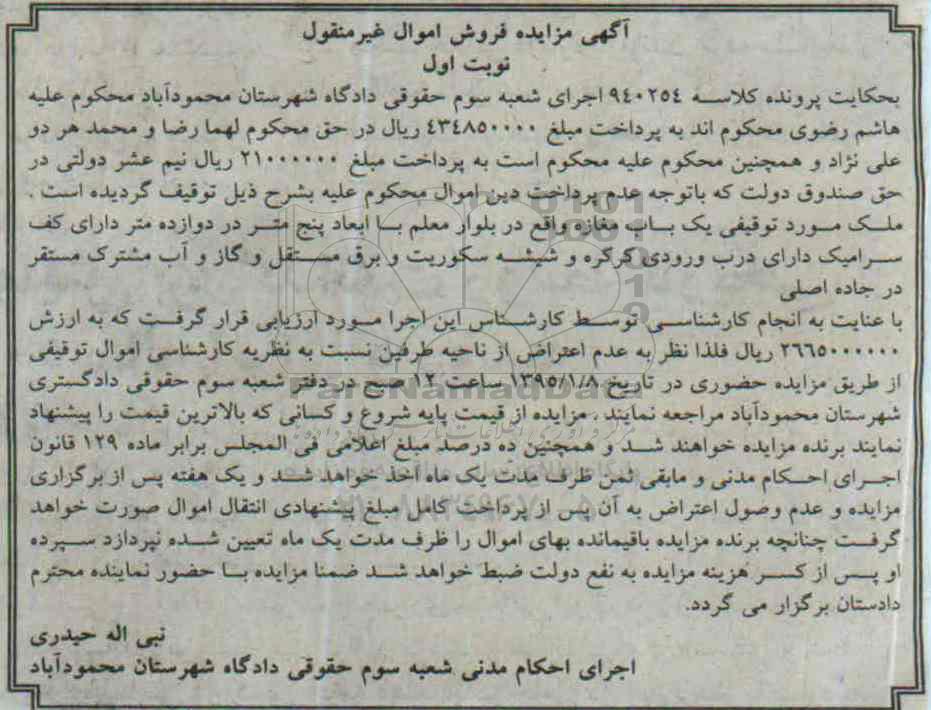 آگهی مزایده فروش اموال غیرمنقول
نوبت اول
بحکایت پرونده کلاسه ۹٤۰۲٥٤ اجرای شعبه سوم حقوقی دادگاه شهرستان محمودآباد محکوم علیه
هاشم رضوی محکوم اند به پرداخت مبلغ ٤۳٤۸٥۰۰۰۰ ریال در حق محکوم لهما رضا و محمد هر دو
علی نژاد و همچنین محکوم علیه محکوم است به پرداخت مبلغ ۲۱۰۰۰۰۰۰ ریال نیم عشر دولتی در
حق صندوق دولت که باتوجه عدم پرداخت دین اموال محکوم علیه بشرح ذیل توقیف گردیده است .
ملک مورد توقیفی یک باب مغازه واقع در بلوار معلم با ابعاد پنج متر در دوازده متر دارای کف
سرامیک دارای درب ورودی کرکره و شیشه سکوریت و برق مستقل و گاز و آب مشترک مستقر
در جاده اصلی
با عنایت به انجام کارشناسی توسط کارشناس این اجرا مورد ارزیابی قرار گرفت که به ارزش
۲٦٦٥۰۰۰۰۰۰ ریال فلذا نظر به عدم اعتراض از ناحیه طرفین نسبت به نظریه کارشناسی اموال توقیفی
از طریق مزایده حضوری در تاریخ ۱۳۹٥/۱/۸ ساعت ۱۲ صبح در دفتر شعبه سوم حقوقی دادگستری
شهرستان محمودآباد مراجعه نمایند . مزایده از قیمت پایه شروع و کسانی که بالاترین قیمت را پیشنهاد
نمایند برنده مزایده خواهند شد و همچنین ده درصد مبلغ اعلامی فی المجلس برابر ماده ۱۲۹ قانون
اجرای احکام مدنی و مابقی ثمن ظرف مدت یک ماه اخذ خواهد شد و یک هفته پس از برگزاری
مزایده و عدم وصول اعتراض به آن پس از پرداخت کامل مبلغ پیشنهادی انتقال اموال صورت خواهد
گرفت چنانچه برنده مزایده باقیمانده بهای اموال را ظرف مدت یک ماه تعیین شده نپردازد سپرده
او پس از کسر هزینه مزایده به نفع دولت ضبط خواهد شد ضمنا مزایده با حضور نماینده محترم
دادستان برگزار می گردد.
نبی اله حیدری
اجرای احکام مدنی شعبه سوم حقوقی دادگاه شهرستان محمودآباد
ParsNamadData